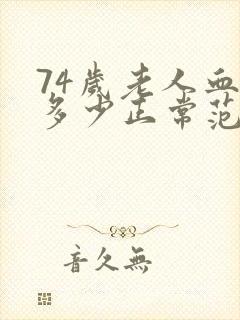 74歲老人血
多少正常范
音久無